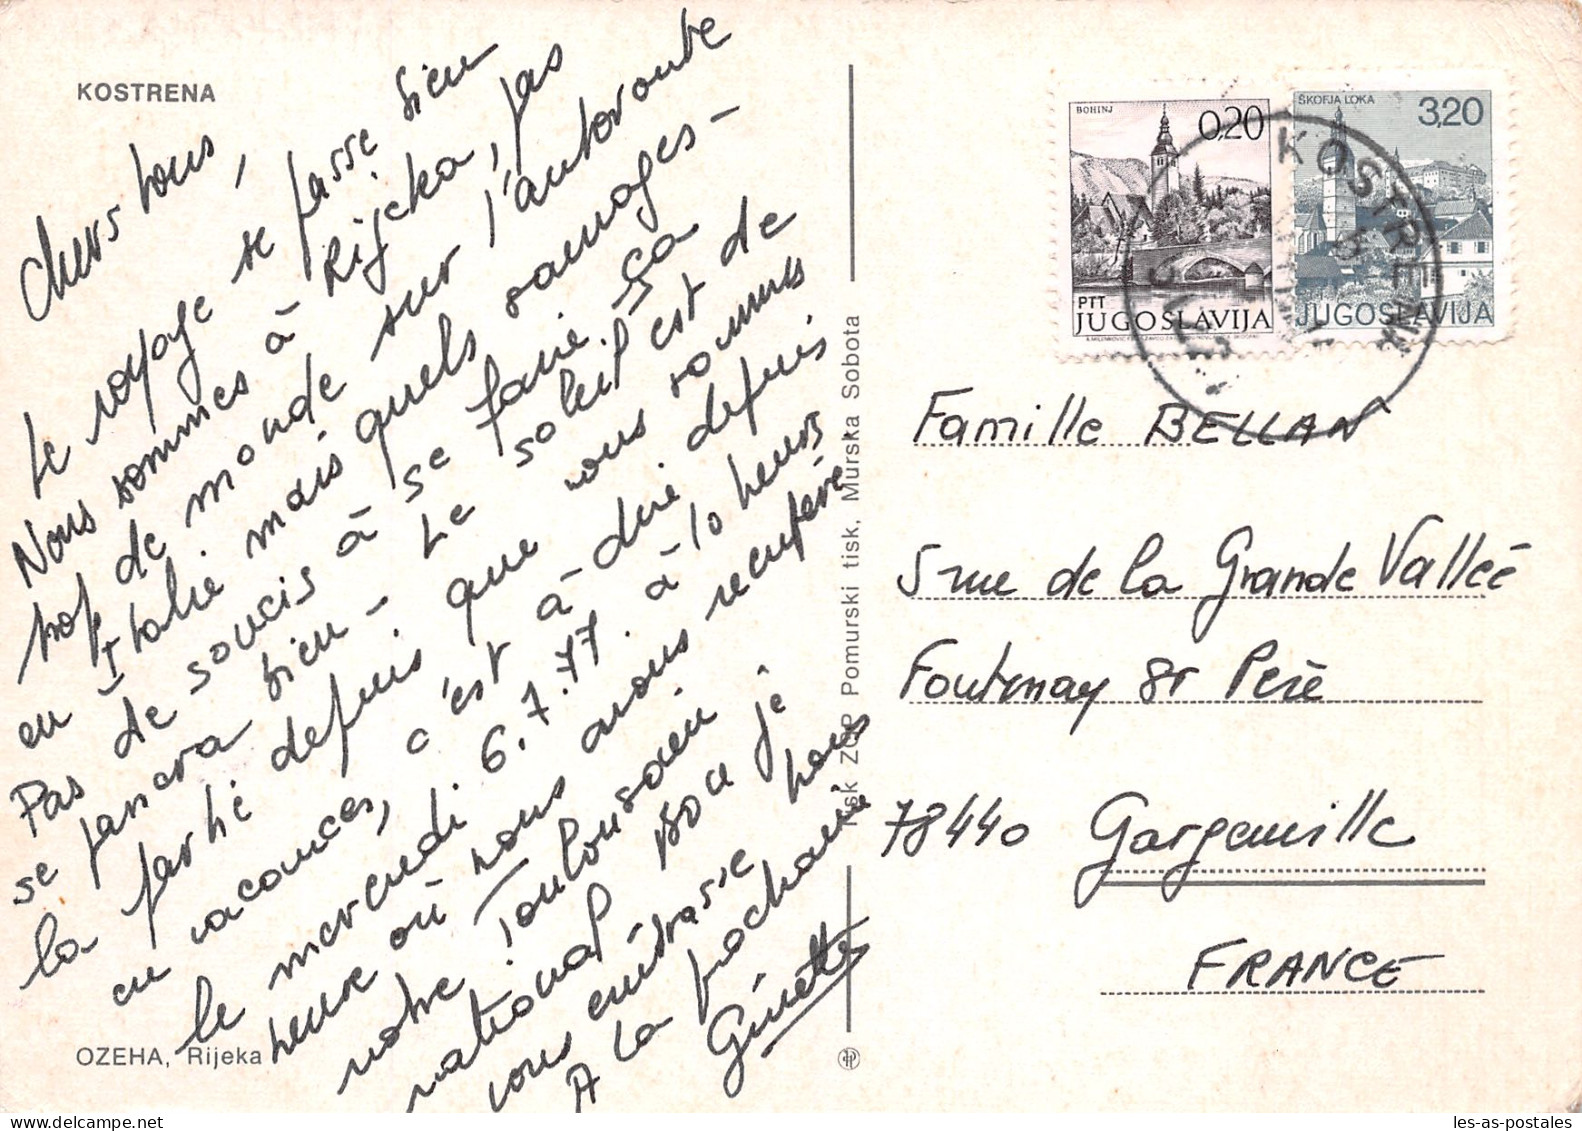 KOSTRENA
Chers tous,
Le voyage se passe bien
Nous sommes à Rijeka, pas
trop de monde sur l'autoroute
en Italie mais quels sauvages -
Pas de soucis à se faire. ça
se passera bien - Le soleil est de
la partie depuis que nous sommes
en vacances, c'est à dire depuis
le mercredi 6.7.77. à 10 heures
heure où nous avons récupéré
notre Toulousain
national Bon je
vous embrasse tous
A la prochaine
Ginette
OZEHA, Rijeka
Tisk ZGP Pomurski tisk, Murska Sobota
BOHINJ
0,20
PTT
JUGOSLAVIJA
ŠKOFJA LOKA
3,20
JUGOSLAVIJA
KOSTRENA
Famille BELLAN
5 rue de la Grande Vallée
Fontenay St Père
78440 Gargenville
FRANCE
les-as-postales